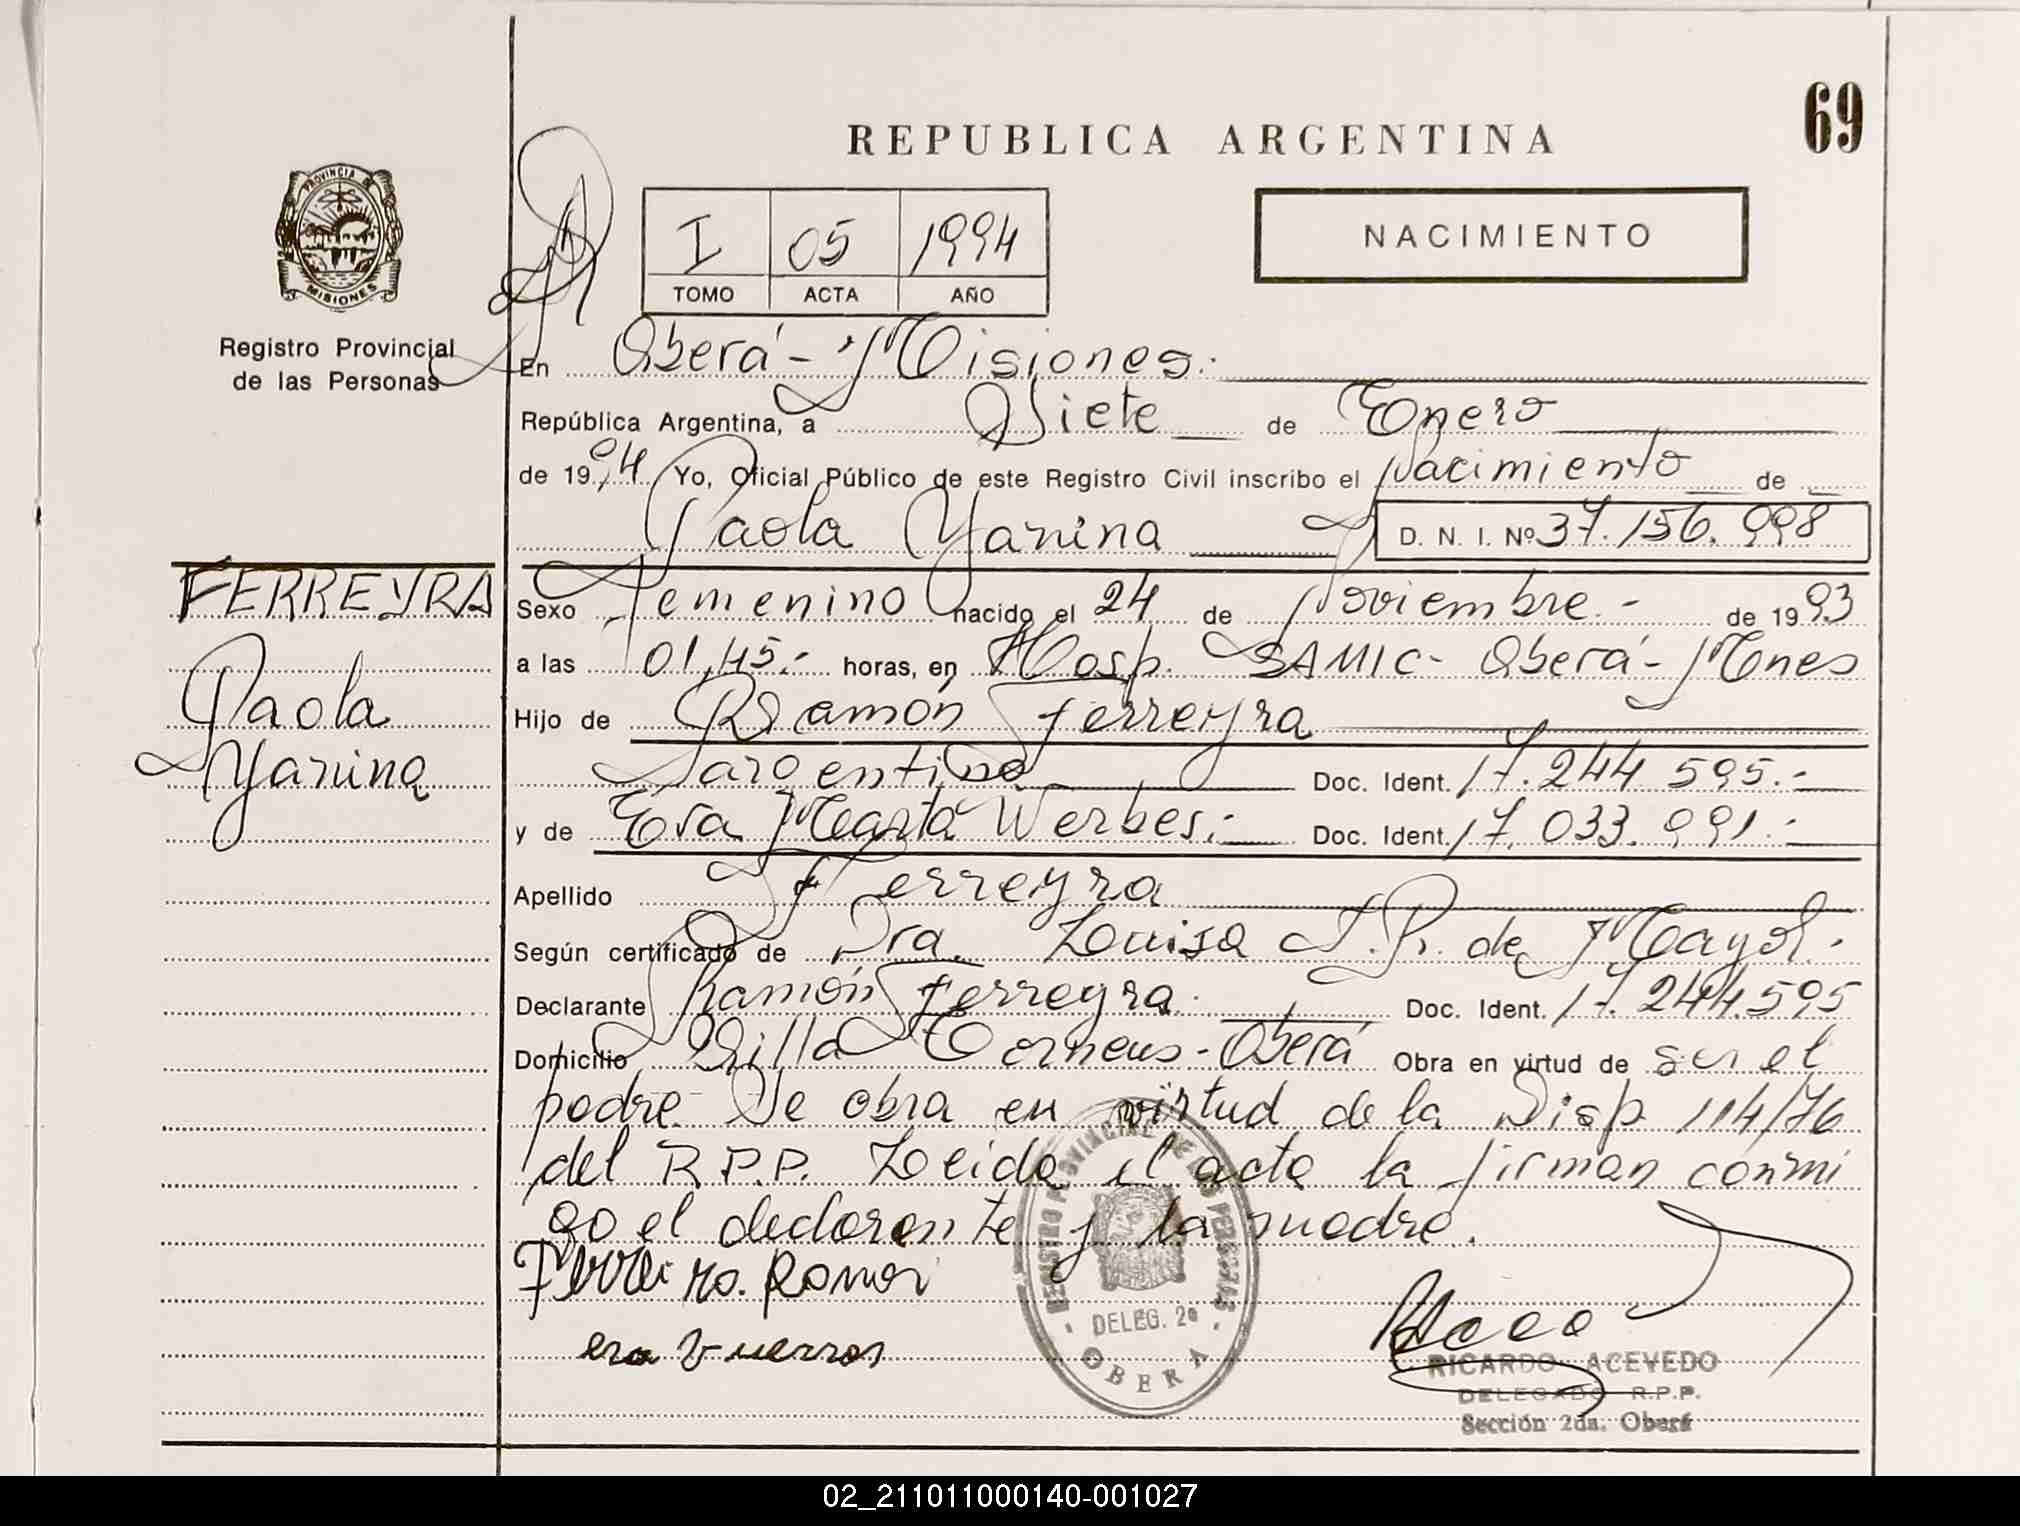 69
REPUBLICA ARGENTINA
PROVINCIA DE
MISIONES
Registro Provincial
de las Personas
I 05 1994
TOMO ACTA AÑO
NACIMIENTO
En Oberá - Misiones.
República Argentina, a Siete de Enero
de 1994 Yo, Oficial Público de este Registro Civil inscribo el Nacimiento de
Paola Yanina D. N. I. Nº 37.156.998
FERREYRA
Paola
Yanina
Sexo Femenino nacido el 24 de Noviembre.- de 1993
a las 01,45.- horas, en Hosp. SAMIC - Oberá - Mnes
Hijo de Ramón Ferreyra
argentino Doc. Ident. 17.244.595.-
y de Eva Marta Werbes.- Doc. Ident. 17.033.991.-
Apellido Ferreyra
Según certificado de Dra. Luisa P. de Mayol.
Declarante Ramón Ferreyra. Doc. Ident. 17.244.595
Domicilio Villa Torneus - Oberá Obra en virtud de ser el
padre. Se obra en virtud de la Disp 114/76
del R.P.P. Leida el acta la firman conmi
go el declarante y la madre.
REGISTRO PROVINCIAL DE LAS PERSONAS
DELEG. 2ª
OBERA
RICARDO ACEVEDO
DELEGADO R.P.P.
Sección 2da. Oberá
02_211011000140-001027